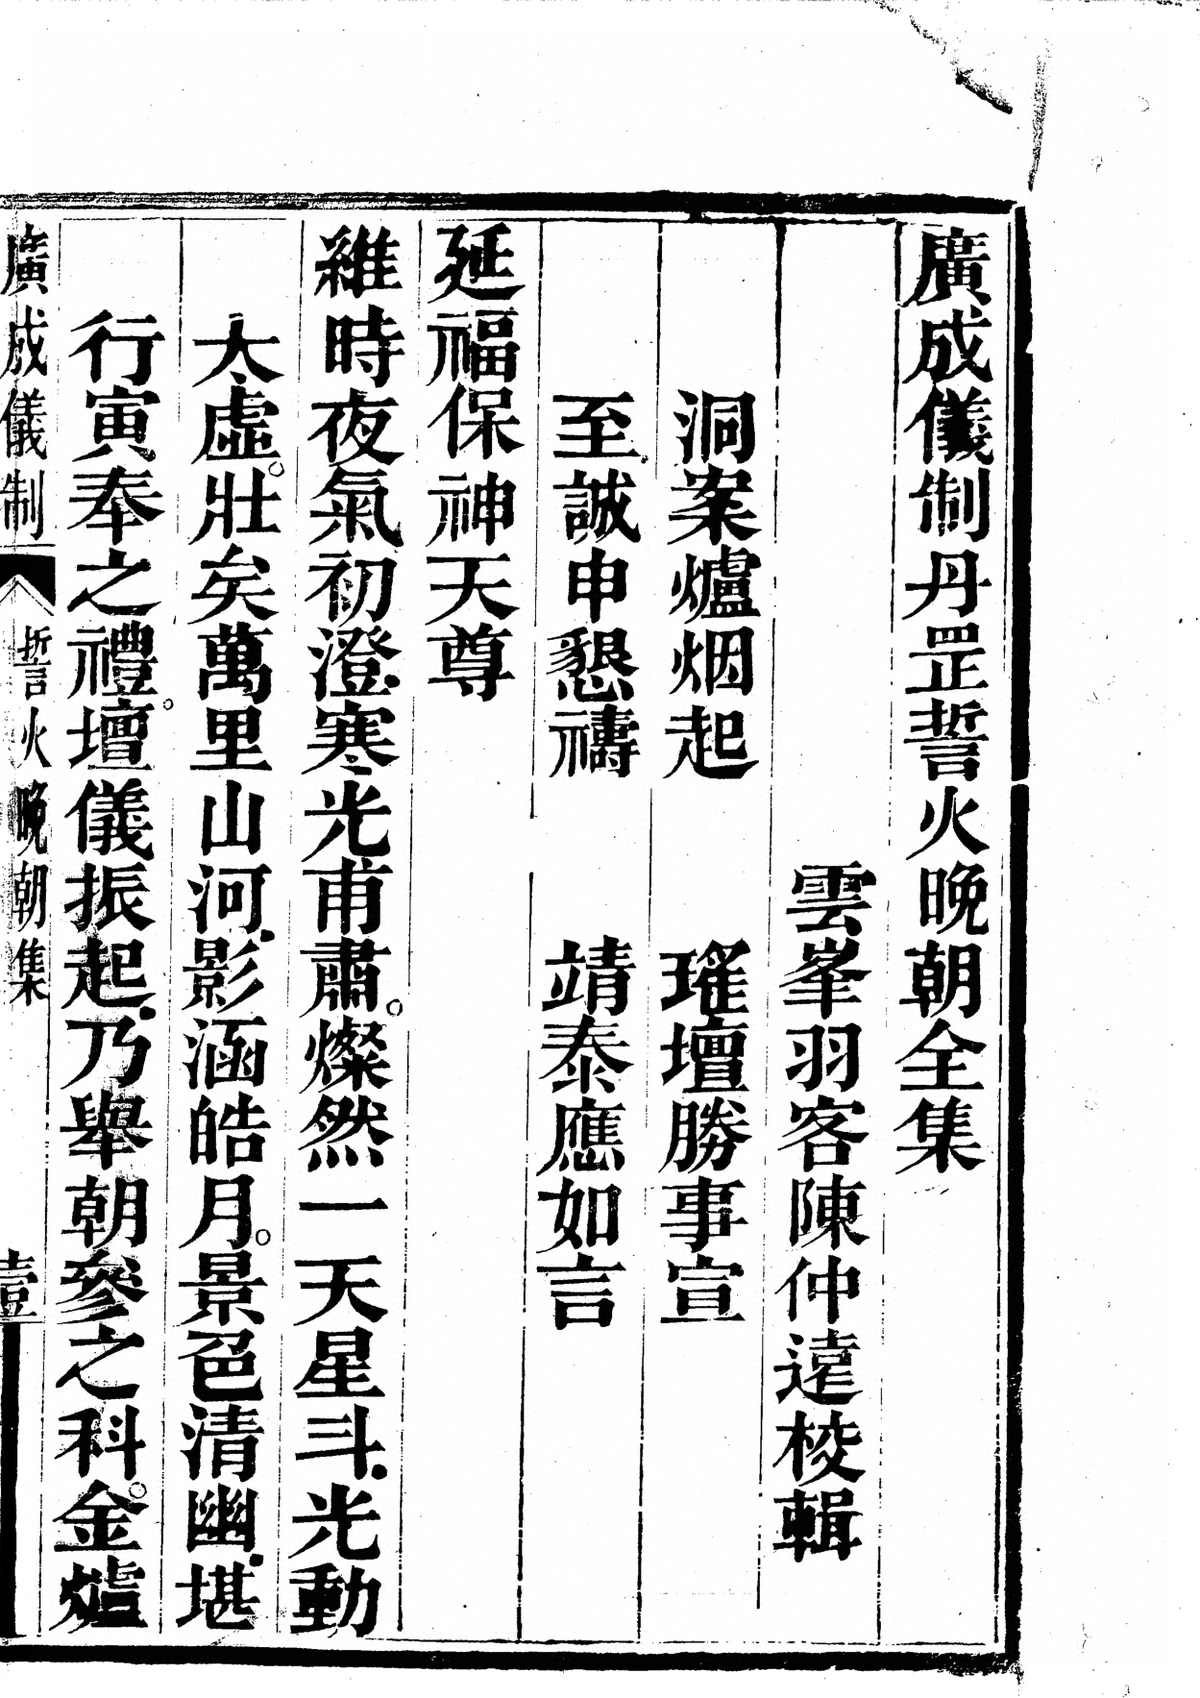 廣成儀制丹罡誓火晚朝全集
雲峯羽客陳仲遠校輯
洞案爐烟起　璀壇勝事宣
至誠申懇禱　靖泰應如言
延福保神天尊
維時夜氣初澄寒光甫肅。燦然一天星斗光動
太虛。壯矣萬里山河影涵皓月。景色清幽堪
行寅奉之禮。壇儀振起乃舉朝參之科。金爐
廣成儀制　誓火晚朝集　壹